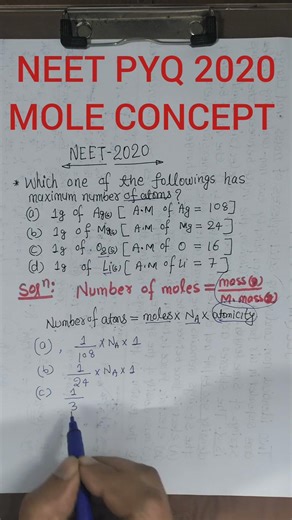 NEET PYQ 2020
MOLE CONCEPT
NEET-2020
* Which one of the followings has
maximum number of atoms?
(a) 1g of Ag(s) [A.M of Ag = 108]
(b) 1g of Mg(s) [A.M of Mg = 24]
(c) 1g of O2(g) [A.M of O = 16]
(d) 1g of Li(s) [A.M of Li = 7]
Solⁿ: Number of moles = mass(g)/M. mass(g)
Number of atoms = moles × NA × atomicity
(a), 1/108 × NA × 1
(b) 1/24 × NA × 1
(c) 1/3